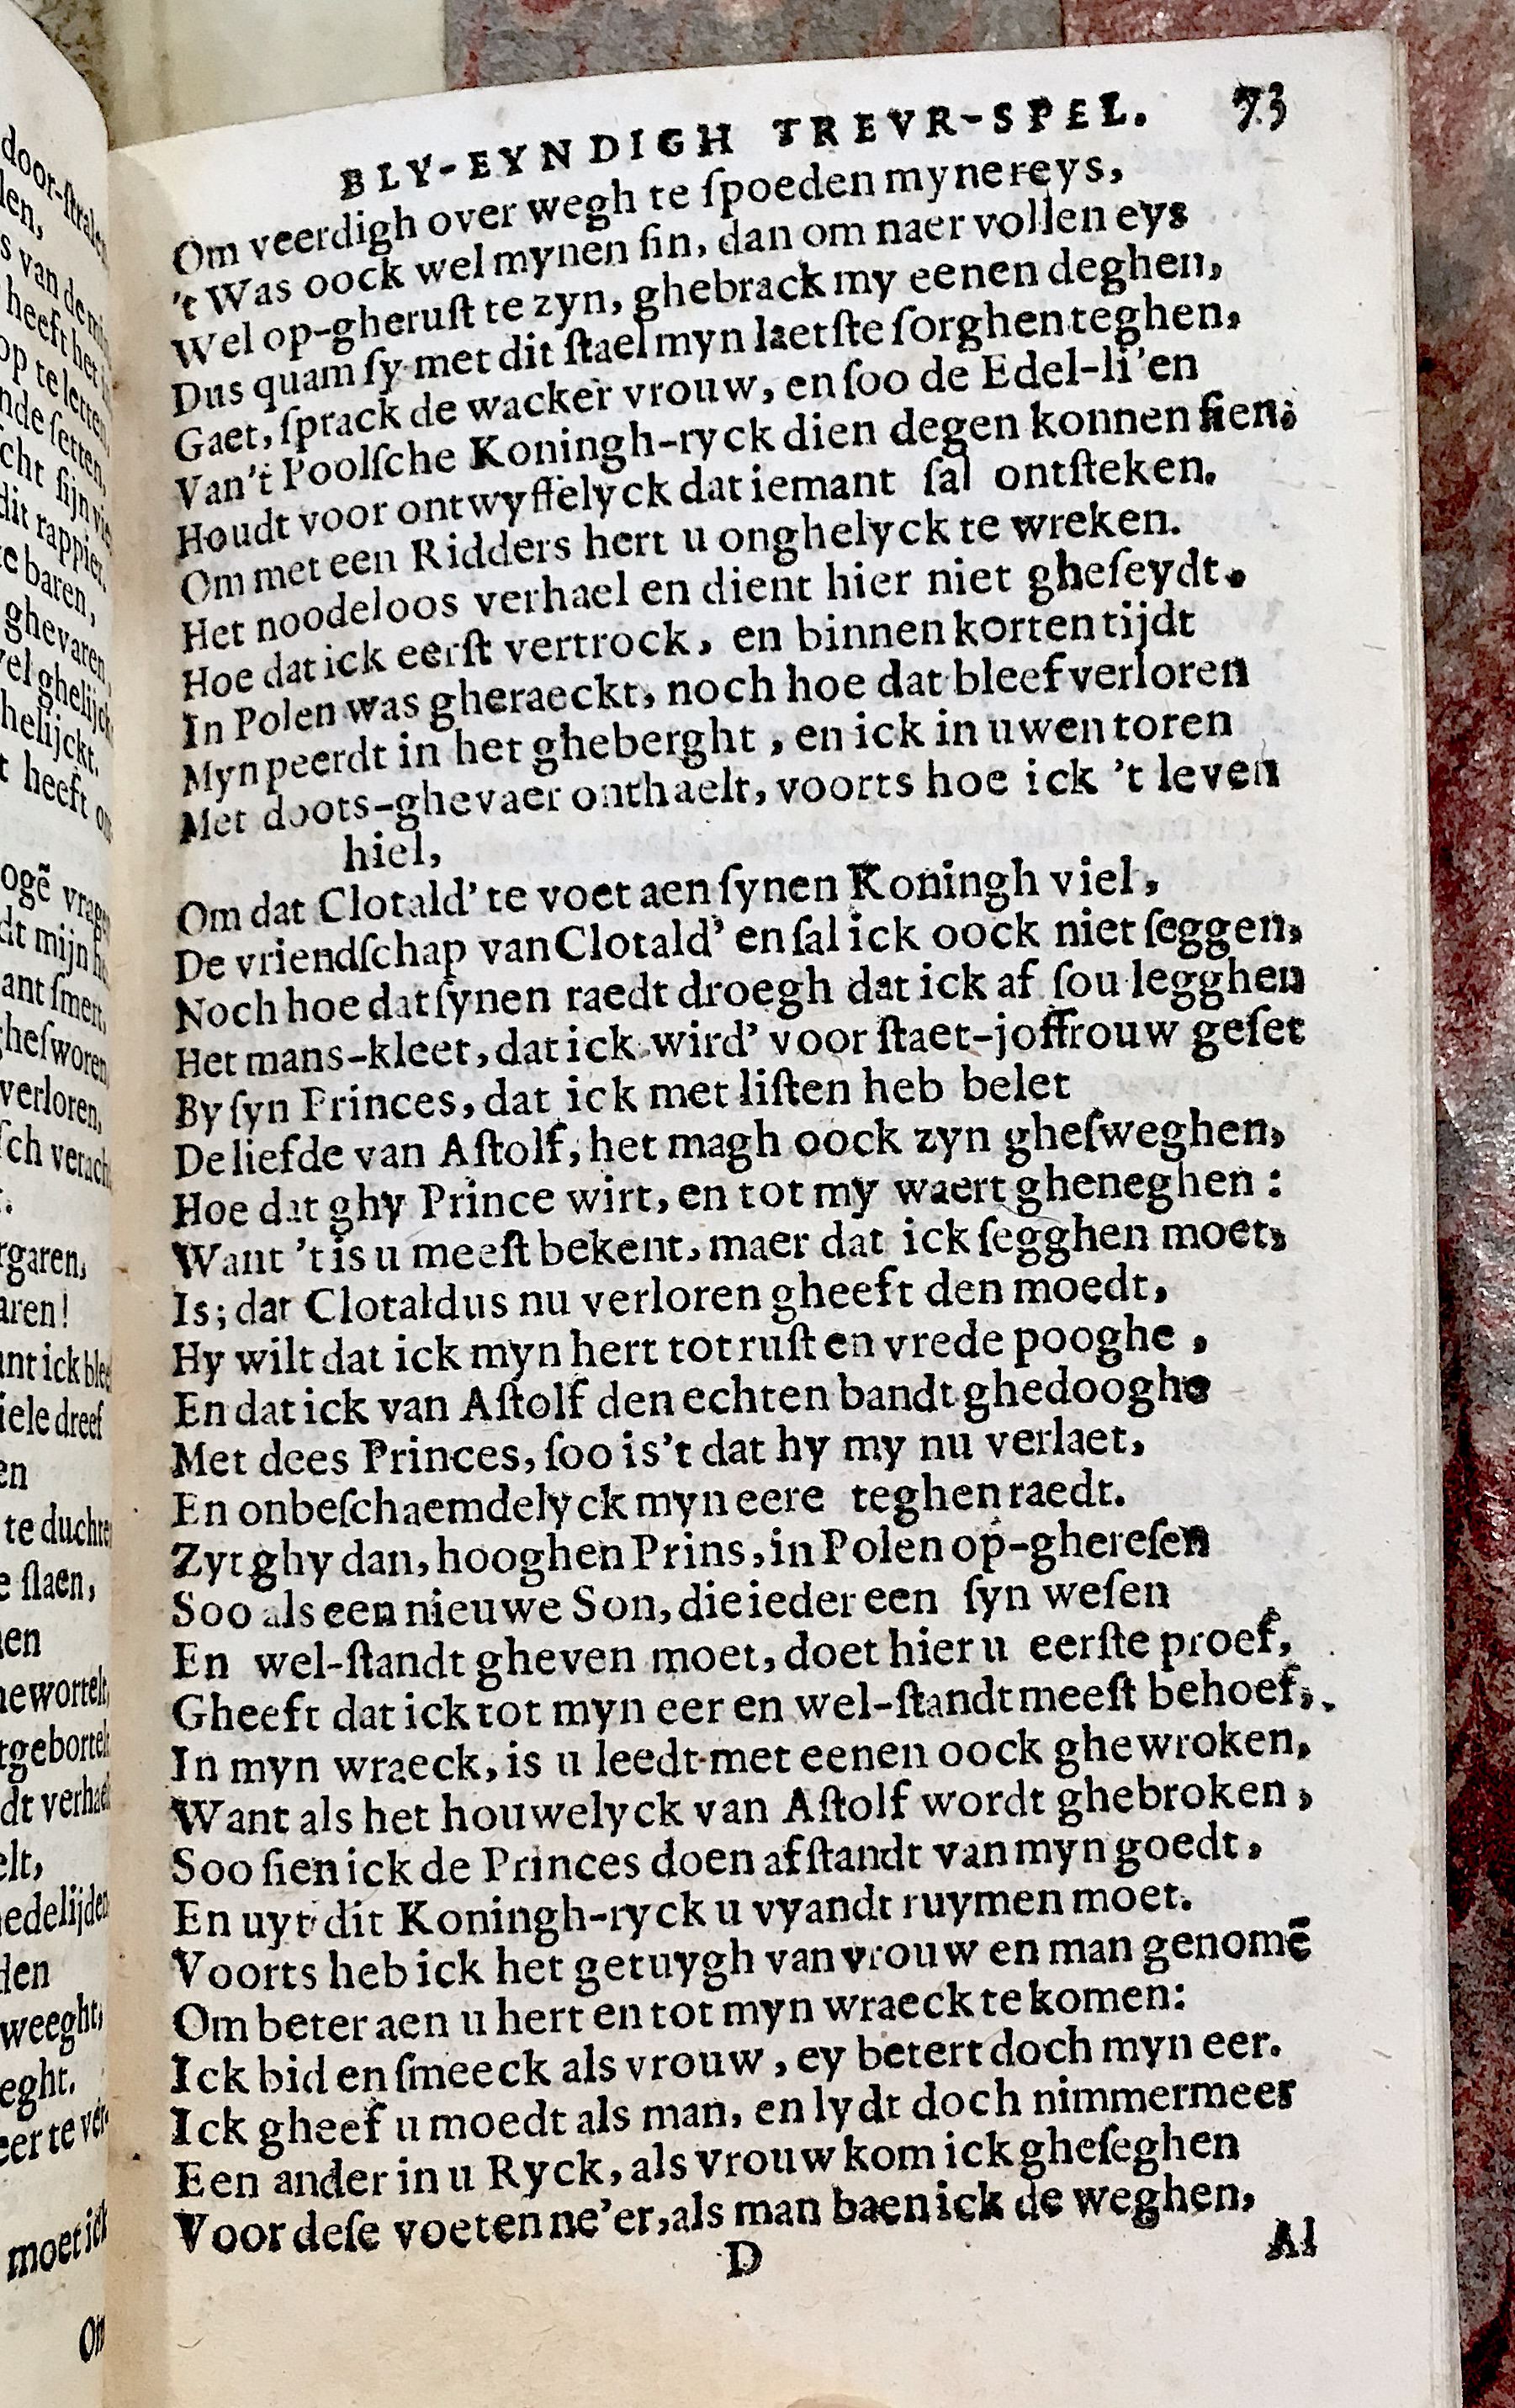 BLY-EYNDIGH TREVR-SPEL. 73
Om veerdigh over wegh te ſpoeden myne reys,
't Was oock wel mynen ſin, dan om naer vollen eys
Wel op-gheruſt te zyn, ghebrack my eenen deghen,
Dus quam ſy met dit ſtael myn laetſte ſorghen teghen,
Gaet, ſprack de wacker vrouw, en ſoo de Edel-li'en
Van't Poolſche Koningh-ryck dien degen konnen ſien;
Houdt voor ontwyffelyck dat iemant ſal ontſteken.
Om met een Ridders hert u onghelyck te wreken.
Het noodeloos verhael en dient hier niet gheſeydt.
Hoe dat ick eerſt vertrock, en binnen korten tijdt
In Polen was gheraeckt, noch hoe dat bleef verloren
Myn peerdt in het gheberght, en ick in uwen toren
Met doots-ghevaer onthaelt, voorts hoe ick 't leven
hiel,
Om dat Clotald' te voet aen ſynen Koningh viel,
De vriendſchap van Clotald' en ſal ick oock niet ſeggen,
Noch hoe dat ſynen raedt droegh dat ick af ſou legghen
Het mans-kleet, dat ick wird' voor ſtaet-joffrouw geſet
By ſyn Princes, dat ick met liſten heb belet
De liefde van Aſtolf, het magh oock zyn gheſweghen,
Hoe dat ghy Prince wirt, en tot my waert gheneghen:
Want 't is u meeſt bekent, maer dat ick ſegghen moet,
Is; dat Clotaldus nu verloren gheeft den moedt,
Hy wilt dat ick myn hert tot ruſt en vrede pooghe,
En dat ick van Aſtolf den echten bandt ghedooghe
Met dees Princes, ſoo is't dat hy my nu verlaet,
En onbeſchaemdelyck myn eere teghen raedt.
Zyt ghy dan, hooghen Prins, in Polen op-ghereſen
Soo als een nieuwe Son, die ieder een ſyn weſen
En wel-ſtandt gheven moet, doet hier u eerſte proef,
Gheeft dat ick tot myn eer en wel-ſtandt meeſt behoef,.
In myn wraeck, is u leedt met eenen oock ghewroken,
Want als het houwelyck van Aſtolf wordt ghebroken,
Soo ſien ick de Princes doen afſtandt van myn goedt,
En uyt dit Koningh-ryck u vyandt ruymen moet.
Voorts heb ick het getuygh van vrouw en man genomē
Om beter aen u hert en tot myn wraeck te komen:
Ick bid en ſmeeck als vrouw, ey betert doch myn eer.
Ick gheef u moedt als man, en lydt doch nimmermeer
Een ander in u Ryck, als vrouw kom ick gheſeghen
Voor deſe voeten ne'er, als man baen ick de weghen,
D Al